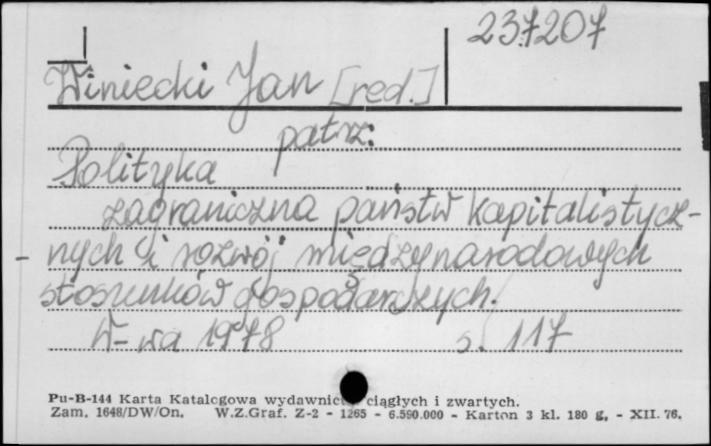 237207
Winiecki Jan [red.]
patrz:
Polityka
zagraniczna państw kapitalistycz-
nych i rozwój międzynarodowych
stosunków gospodarczych.
W-wa 1978 s. 117
Pu-B-144 Karta Katalogowa wydawnict ciągłych i zwartych.
Zam. 1648/DW/On. W.Z.Graf. Z-2 - 1265 - 6.590.000 - Karton 3 kl. 180 g. - XII. 76.